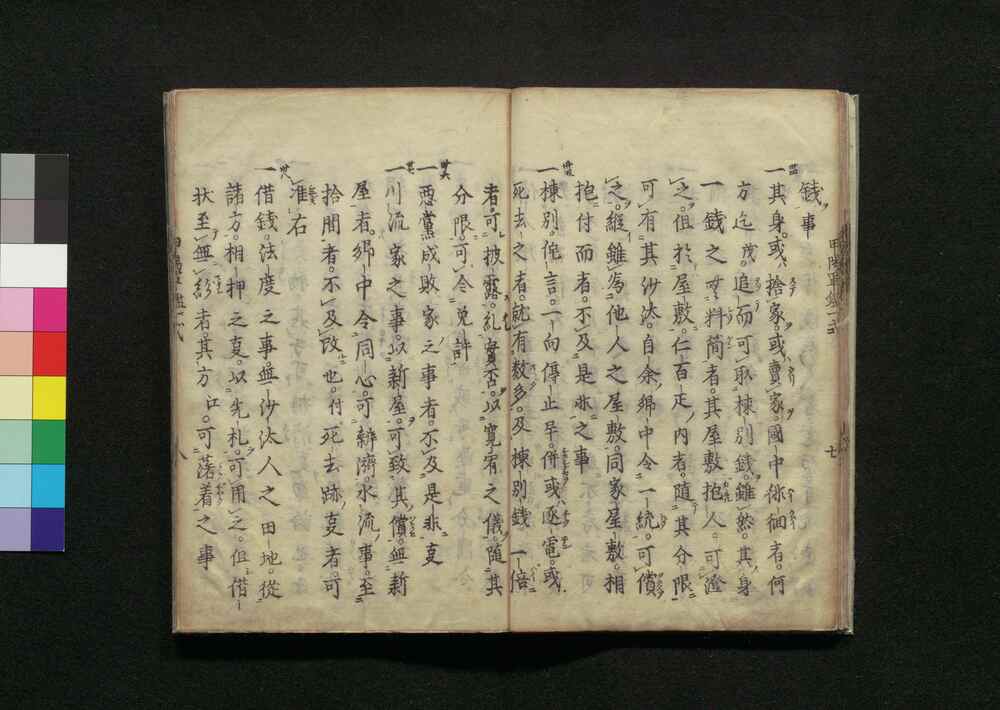 錢事
一其身或捨家或賣家國中徘徊者何
方迄茂追而可取棟別錢雖然其身
一錢之無料簡者其屋敷抱人可濟
之但於屋敷仁百疋内者隨其分限
可有其沙汰自余郷中令一統可償
之縱雖為他人之屋敷同家屋敷相
抱付而者不及是非之事
一棟別侘言一向停止畢併或逐電或
死去之者就有数多及棟別錢一倍
者可披露糺實否以寛宥之儀隨其
分限可令免許
一悪黨成敗家之事者不及是非叓
一川流家之事以新屋可致其償無新
屋者郷中令同心可辨濟水流事至
拾間者不及改也付死去跡叓者可
准右
一借錢法度之事無沙汰人之田地從
諸方相押之叓以先札可用之但借
状至無紛者其方江可落着之事
七
八